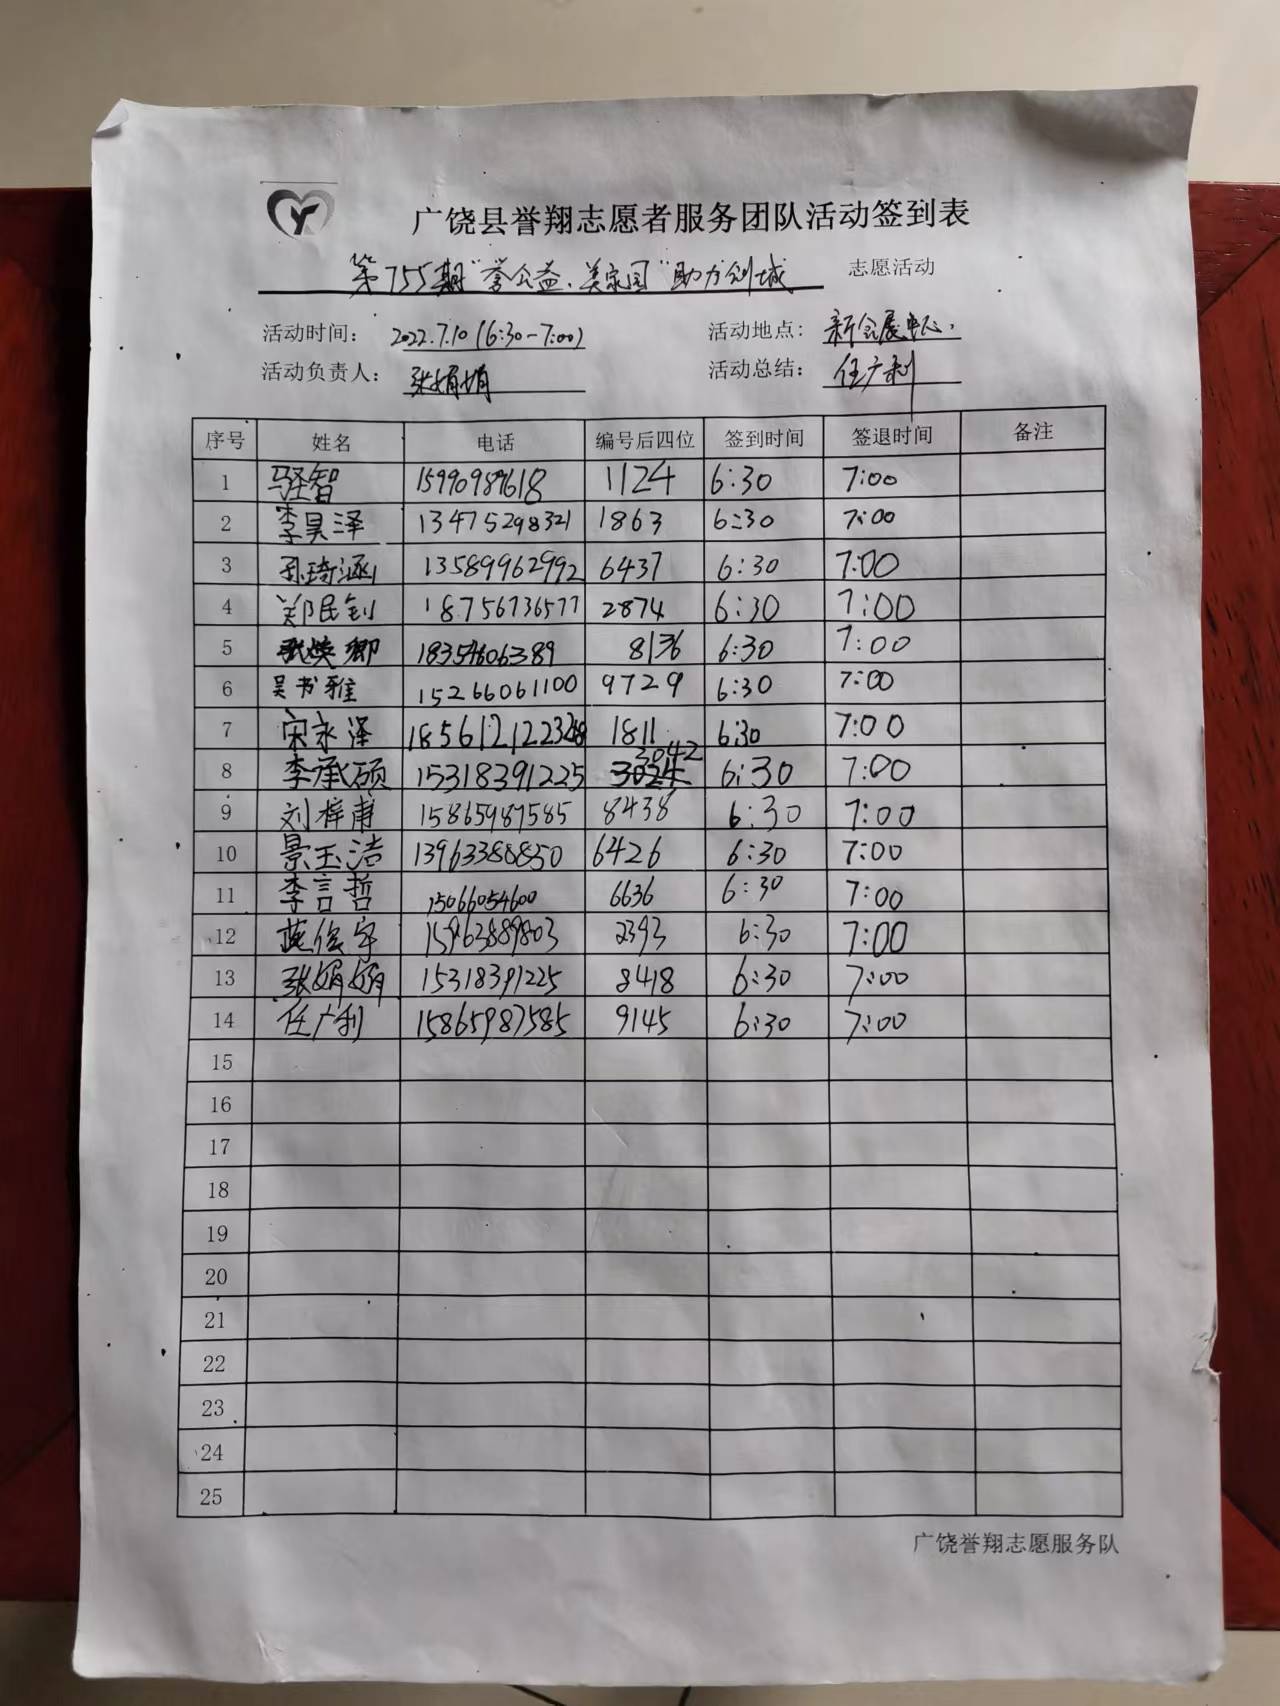 广饶县誉翔志愿者服务团队活动签到表
第755期“誉公益、美家园”助力创城 志愿活动
活动时间： 2022.7.10（6:30-7:00） 活动地点： 新会展中心，
活动负责人： 张娟娟 活动总结： 任广利
序号 姓名 电话 编号后四位 签到时间 签退时间 备注
1 智 15990989618 1124 6:30 7:00
2 李昊泽 13475298321 1863 6:30 7:00
3 孙琦涵 13589962992 6437 6:30 7:00
4 郑民钊 18756736577 2874 6:30 7:00
5 卿 18354606389 8136 6:30 7:00
6 吴书雅 15266061100 9729 6:30 7:00
7 宋永泽 1811 6:30 7:00
8 李承硕 15318391225 3042 6:30 7:00
9 刘梓甫 15865987585 8438 6:30 7:00
10 景玉洁 13963388850 6426 6:30 7:00
11 李言哲 15066054600 6636 6:30 7:00
12 宇 15963889803 2393 6:30 7:00
13 张娟娟 15318391225 8418 6:30 7:00
14 任广利 15865987585 9145 6:30 7:00
15
16
17
18
19
20
21
22
23
24
25
广饶誉翔志愿服务队